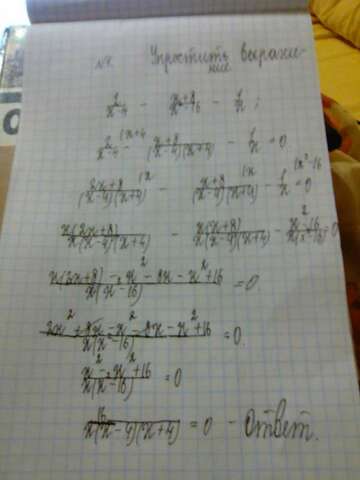 №1. Упростить выражение
2/(x-4) - (x+8)/(x²-16) - 1/x ;
2/(x-4) |x+4 - (x+8)/((x-4)(x+4)) - 1/x = 0
(2x+8)/((x-4)(x+4)) |x - (x+8)/((x-4)(x+4)) |x - 1/x |x²-16 = 0
x(2x+8)/(x(x-4)(x+4)) - x(x+8)/(x(x-4)(x+4)) - (x²-16)/(x(x²-16)) = 0
(x(2x+8) - x² - 8x - x² + 16)/(x(x²-16)) = 0
(2x² + 8x - x² - 8x - x² + 16)/(x(x²-16)) = 0.
(x² - x² + 16)/(x(x²-16)) = 0
16/(x(x-4)(x+4)) = 0 - Ответ.